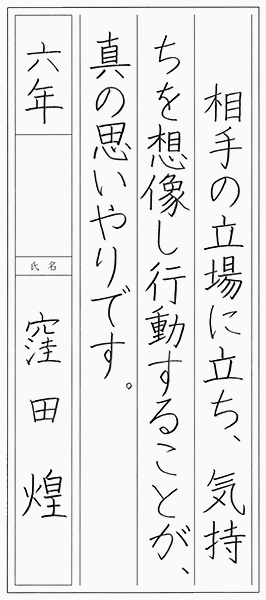 相手の立場に立ち、気持
ちを想像し行動することが、
真の思いやりです。
六年
氏名
窪田煌